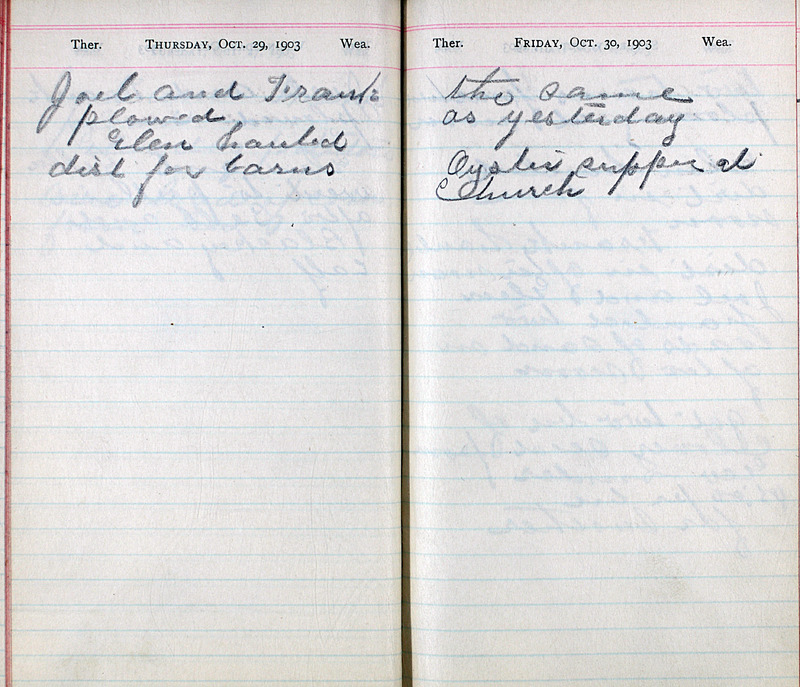 Ther. THURSDAY, OCT. 29, 1903 Wea.
Joel and Frank
plowed
Glen hauled
dirt for barns
Ther. FRIDAY, OCT. 30, 1903 Wea.
the same
as yesterday
Oyster supper at
Church